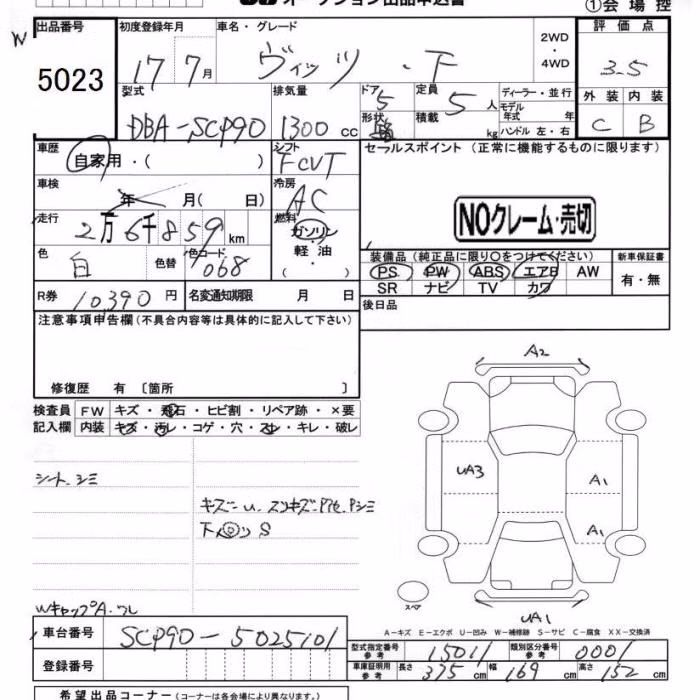 オークション出品申込書
①会場控
W
出品番号 初度登録年月 車名・グレード 2WD・4WD 評価点
5023 17 7月 ヴィッツ ・ F 3.5
型式 排気量 ドア 定員 ディーラー・並行 外装 内装
DBA-SCP90 1300 cc 5 5人 モデル年式 年 C B
形状 積載 kg ハンドル 左・右
車歴 自家用・( ) シフト FCVT セールスポイント (正常に機能するものに限ります)
車検 年 月(日) 冷房 AC
NOクレーム・売切
走行 2万6千859km 燃料 ガソリン・軽油・( )
色 白 色替 色コード 068
装備品 (純正品に限り○をつけてください) 新車保証書
PS PW ABS エアB AW 有・無
SR ナビ TV カワ
R券 10390円 名変通知期限 月 日 後日品
注意事項申告欄 (不具合内容等は具体的に記入して下さい)
修復歴 有 〔箇所 〕
検査員 FW キズ・飛石・ヒビ割・リペア跡・×要
記入欄 内装 キズ・汚レ・コゲ・穴・スレ・キレ・破レ
A2
UA3 A1
A1
UA1
スペア
シート シミ
キズー u.スリキズ
S
WキャップA.ワレ
A-キズ E-エクボ U-凹み W-補修跡 S-サビ C-腐食 XX-交換済
車台番号 SCP90-5025101
型式指定番号 参考 15011 類別区分番号 参考 0001
登録番号
車庫証明用 参考 長さ 375cm 幅 169cm 高さ 152cm
希望出品コーナー (コーナーは各会場により異なります。)